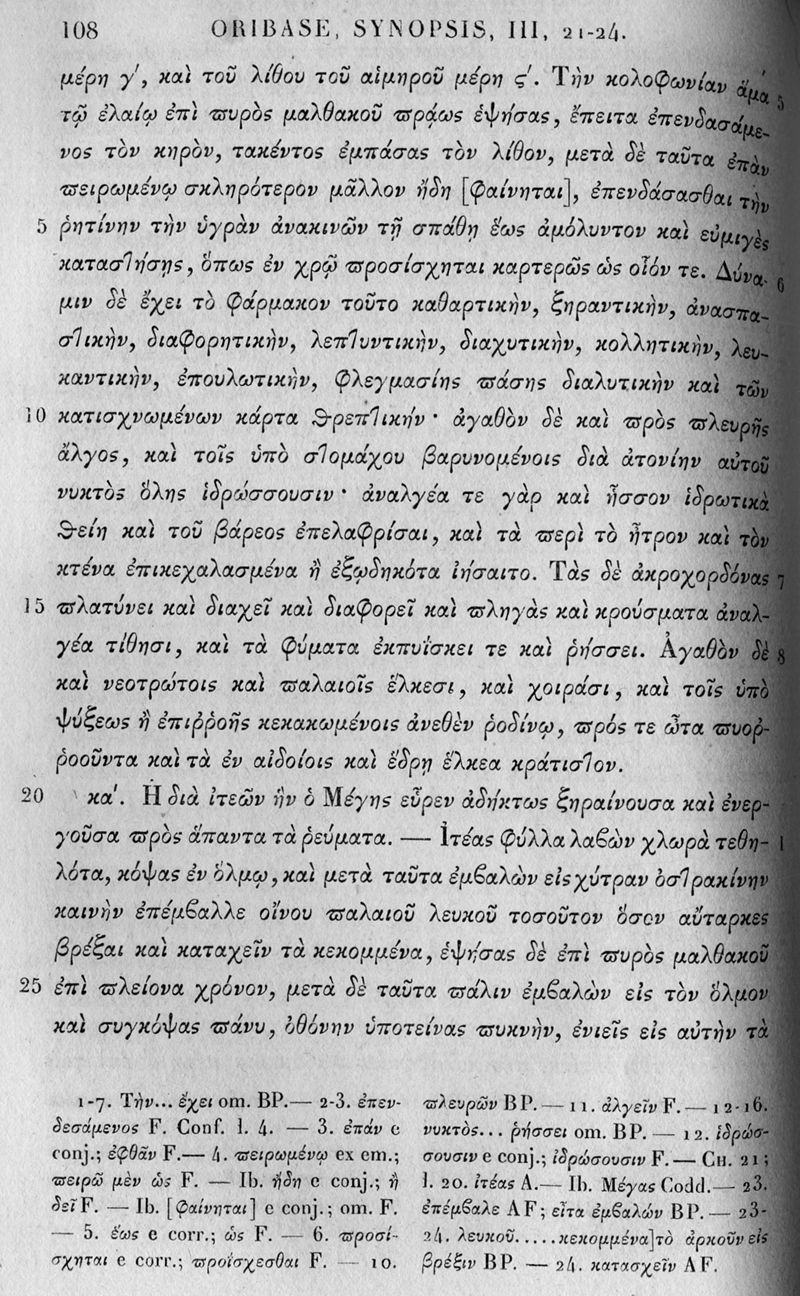 108 ORIBASE, SYNOPSIS, III, 21-24.
μέρη γ′, καὶ τοῦ λίθου τοῦ αἱμηροῦ μέρη ϛ′. Τὴν κολοφωνίαν ἅμα 5
τῷ ἐλαίῳ ἐπὶ πυρὸς μαλθακοῦ πράως ἑψήσας, ἔπειτα ἐπενδασάμε-
νος τὸν κηρὸν, τακέντος ἐμπάσας τὸν λίθον, μετὰ δὲ ταῦτα ἐπὰν
πειρωμένῳ σκληρότερον μᾶλλον ἤδη [φαίνηται], ἐπενδάσασθαι τὴν
5 ῥητίνην τὴν ὑγρὰν ἀνακινῶν τῇ σπάθῃ ἕως ἀμόλυντον καὶ εὐμιγὲς
καταστήσῃς, ὅπως ἐν χρῷ προσίσχηται καρτερῶς ὡς οἷόν τε. Δύνα- 6
μιν δὲ ἔχει τὸ φάρμακον τοῦτο καθαρτικὴν, ξηραντικὴν, ἀνασπα-
στικὴν, διαφορητικὴν, λεπτυντικὴν, διαχυτικὴν, κολλητικὴν, λευ-
καντικὴν, ἐπουλωτικὴν, φλεγμασίης πάσης διαλυτικὴν καὶ τῶν
10 κατισχνωμένων κάρτα θρεπτικήν· ἀγαθὸν δὲ καὶ πρὸς πλευρῆς
ἄλγος, καὶ τοῖς ὑπὸ στομάχου βαρυνομένοις διὰ ἀτονίην αὐτοῦ
νυκτὸς ὅλης ἱδρώσσουσιν· ἀναλγέα τε γὰρ καὶ ἧσσον ἱδρωτικὰ
θείη καὶ τοῦ βάρεος ἐπελαφρίσαι, καὶ τὰ περὶ τὸ ἦτρον καὶ τὸν
κτένα ἐπικεχαλασμένα ἢ ἐξῳδηκότα ἰήσαιτο. Τὰς δὲ ἀκροχορδόνας 7
15 πλατύνει καὶ διαχεῖ καὶ διαφορεῖ καὶ πληγὰς καὶ κρούσματα ἀναλ-
γέα τίθησι, καὶ τὰ φύματα ἐκπυΐσκει τε καὶ ῥήσσει. Ἀγαθὸν δὲ 8
καὶ νεοτρώτοις καὶ παλαιοῖς ἕλκεσι, καὶ χοιράσι, καὶ τοῖς ὑπὸ
ψύξεως ἢ ἐπιῤῥοῆς κεκακωμένοις ἀνεθὲν ῥοδίνῳ, πρός τε ὦτα πυοῤ-
ῥοοῦντα καὶ τὰ ἐν αἰδοίοις καὶ ἕδρῃ ἕλκεα κράτιστον.
20 κα′. Ἡ διὰ ἰτεῶν ἣν ὁ Μέγης εὗρεν ἀδήκτως ξηραίνουσα καὶ ἐνερ-
γοῦσα πρὸς ἅπαντα τὰ ῥεύματα. — Ἰτέας φύλλα λαβὼν χλωρὰ τεθη- 1
λότα, κόψας ἐν ὅλμῳ, καὶ μετὰ ταῦτα ἐμβαλὼν εἰς χύτραν ὀστρακίνην
καινὴν ἐπέμβαλλε οἴνου παλαιοῦ λευκοῦ τοσοῦτον ὅσον αὔταρκες
βρέξαι καὶ καταχεῖν τὰ κεκομμένα, ἑψήσας δὲ ἐπὶ πυρὸς μαλθακοῦ
25 ἐπὶ πλείονα χρόνον, μετὰ δὲ ταῦτα πάλιν ἐμβαλὼν εἰς τὸν ὅλμον
καὶ συγκόψας πάνυ, ὀθόνην ὑποτείνας πυκνὴν, ἐνιεῖς εἰς αὐτὴν τὰ
1-7. Τὴν... ἔχει om. BP.— 2-3. ἐπεν-
δεσάμενος F. Conf. l. 4. — 3. ἐπάν e
conj.; ἐφθᾶν F.— 4. πειρωμένῳ ex em.;
πειρῶ μὲν ὡς F. — Ib. ἤδη e conj.; ἢ
δεῖ F. — Ib. [φαίνηται] e conj.; om. F.
— 5. ἕως e corr.; ὡς F. — 6. προσί-
σχηται e corr.; προΐσχεσθαι F. — 10.
πλευρῶν BP. — 11. ἀλγεῖν F. — 12-16.
νυκτὸς... ῥήσσει om. BP. — 12. ἱδρώσ-
σουσιν e conj.; ἱδρώσουσιν F. — CH. 21;
l. 20. ἰτέας A.— Ib. Μέγας Codd.— 23.
ἐπέμβαλε AF; εἶτα ἐμβαλών BP. — 23-
24. λευκοῦ..... κεκομμένα] τὸ ἀρκοῦν εἰς
βρέξιν BP. — 24. κατασχεῖν AF.